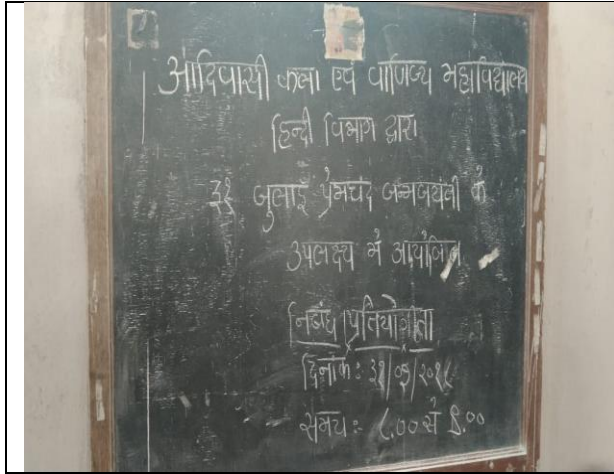 आदिवासी कला एवं वाणिज्य महाविद्यालय
हिन्दी विभाग द्वारा
३१ जुलाई प्रेमचंद जन्मजयंती के
उपलक्ष्य में आयोजित
निबंध प्रतियोगीता
दिनांक : ३१/०७/२०१८
समय :- ८.०० से ९.००